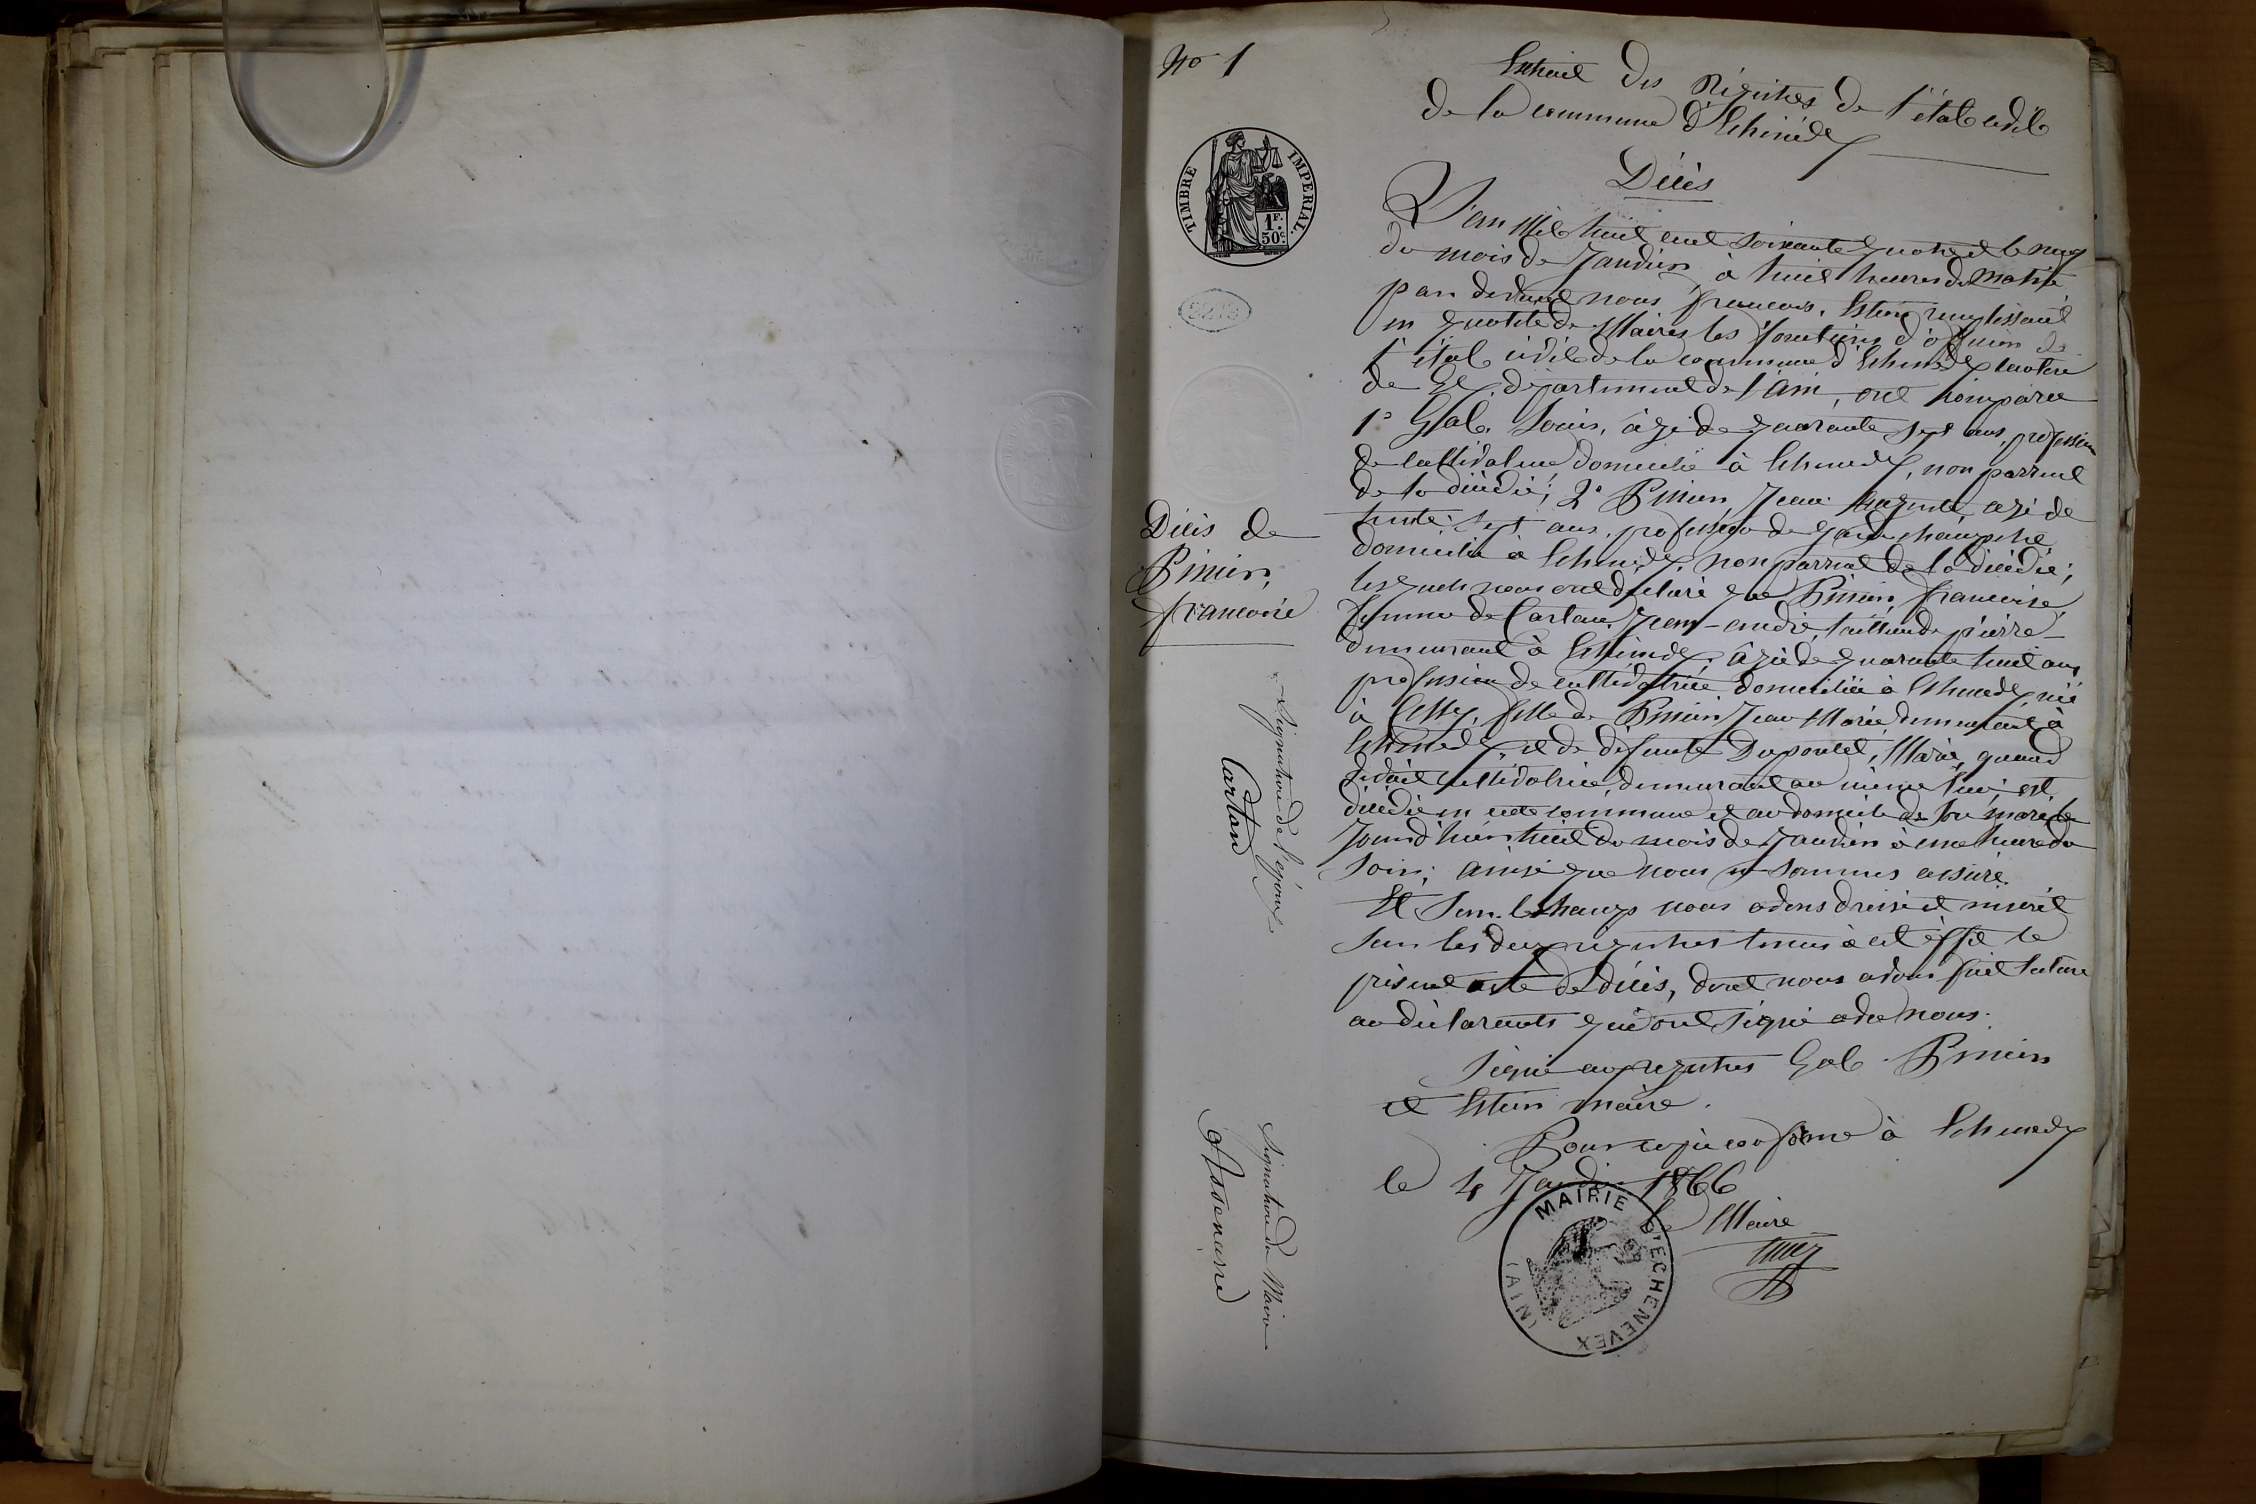 No 1
Extrait des Régistres de l'état civil
de la commune d'Echenevex
Décès
L'an Mil huit cent soixante quatre et le neuf
du mois de Janvier, à huit heures du matin
par devant nous francois, Estier remplissant
en qualité de Maire les fonctions d'officier de
l'état civil de la commune d'Echenevex canton
de Gex, département de l'ain, ont comparu
1° Gal, Louis, agé de quarante sept ans, profession
de cultivateur, domicilié à Echenevex, non parrent
de la décédée; 2° Jean agé de
trente sept ans, profession de garde champetre
domicilié à Echenevex, non parrent de la décédée;
lesquels nous ont déclaré que francoise,
femme de Cartan, Jean-andré, tailleur de pierre
demeurant à Echenevex, agée de quarante huit ans
profession de cultivatrice, domiciliée à Echenevex, née
à Cessy, fille de Jean Marie demeurant à
Echenevex, et de défunte Dupontet, Marie, quand
vivait cultivatrice, demeurant au même lieu, est
décédée en cette commune et au domicile de son mari, le
jour d'hier, huit du mois de Janvier à une heure du
soir; ainsi que nous sommes assuré.
Et sur le champ nous avons dressé et inscrit
sur les deux régistres tenus à cet effet le
présent acte de décès, dont nous avons fait lecture
au déclarants qui ont signé avec nous.
Signé aux régistres Gal.
et Estier maire.
Pour copie conforme à Echenevex
le 4 Janvier 1866
Le Maire
MAIRIE D'ECHENEVEX
(AIN)
TIMBRE IMPERIAL.
1F.
50c
Décès de
francoise
Signature de l'époux
Cartan
Signature du Maire